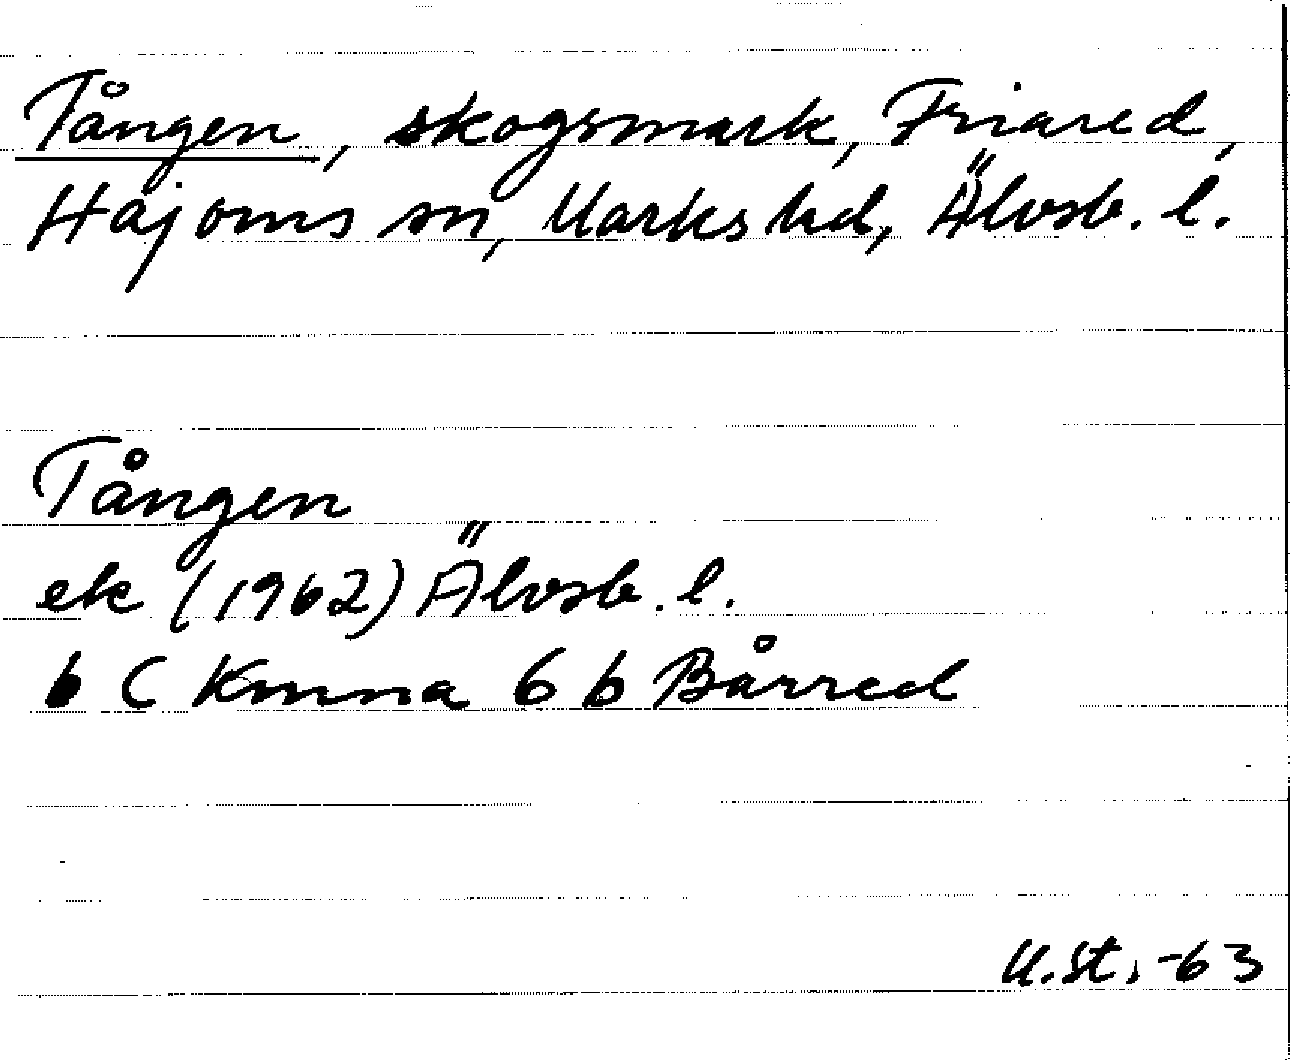 Tången, skogsmark, Friared,
Hajoms sn, Marks hd, Älvsb. l.
Tången
ek (1962) Älvsb. l.
b C Kinna 6 b Bårred
M.St. -63